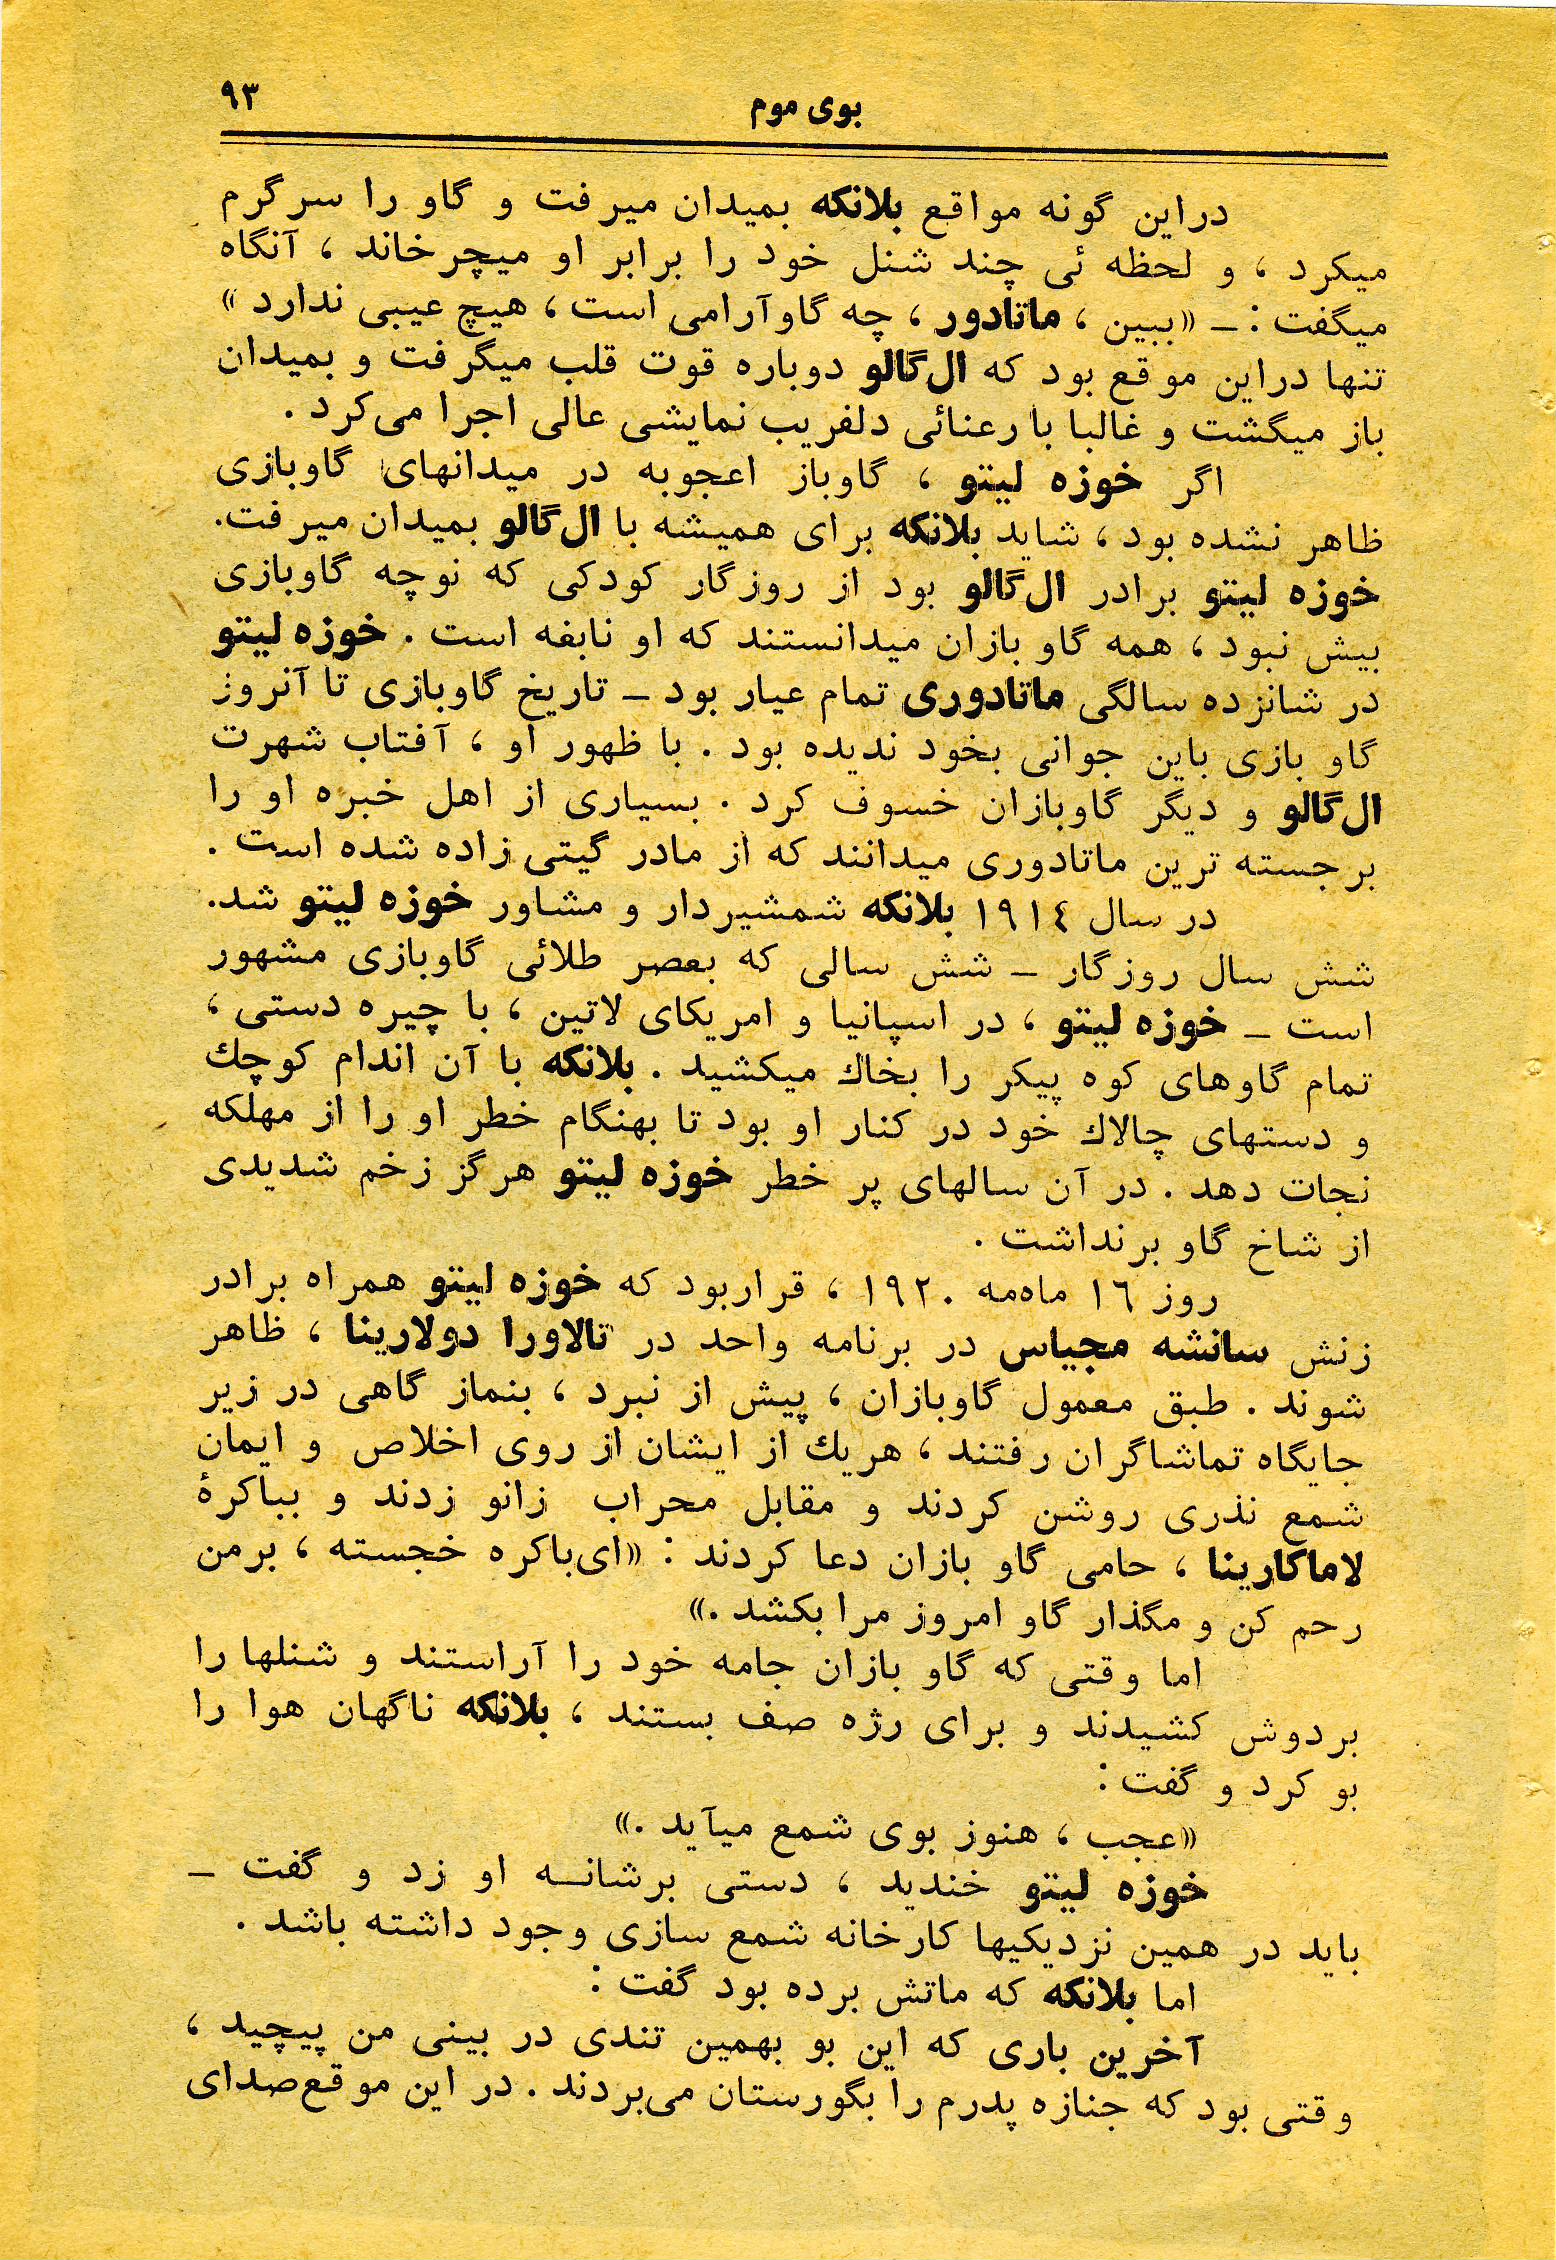 بوی موم ۹۳
دراین گونه مواقع بلانکه بمیدان میرفت و گاو را سرگرم
میکرد ، و لحظه ئی چند شنل خود را برابر او میچرخاند ، آنگاه
میگفت : ـ «ببین ، ماتادور ، چه گاوآرامی است ، هیچ عیبی ندارد »
تنها دراین موقع بود که ال‌گالو دوباره قوت قلب میگرفت و بمیدان
باز میگشت و غالبا با رعنائی دلفریب نمایشی عالی اجرا می‌کرد .
اگر خوزه لیتو ، گاوباز اعجوبه در میدانهای گاوبازی
ظاهر نشده بود ، شاید بلانکه برای همیشه با ال‌گالو بمیدان میرفت.
خوزه لیتو برادر ال‌گالو بود از روزگار کودکی که نوچه گاوبازی
بیش نبود ، همه گاو بازان میدانستند که او نابغه است . خوزه لیتو
در شانزده سالگی ماتادوری تمام عیار بود ـ تاریخ گاوبازی تا آنروز
گاو بازی باین جوانی بخود ندیده بود . با ظهور او ، آفتاب شهرت
ال‌گالو و دیگر گاوبازان خسوف کرد . بسیاری از اهل خبره او را
برجسته ترین ماتادوری میدانند که از مادر گیتی زاده شده است .
در سال ۱۹۱٤ بلانکه شمشیردار و مشاور خوزه لیتو شد.
شش سال روزگار ـ شش سالی که بعصر طلائی گاوبازی مشهور
است ـ خوزه لیتو ، در اسپانیا و امریکای لاتین ، با چیره دستی ،
تمام گاوهای کوه پیکر را بخاك میکشید . بلانکه با آن اندام کوچك
و دستهای چالاك خود در کنار او بود تا بهنگام خطر او را از مهلکه
نجات دهد . در آن سالهای پر خطر خوزه لیتو هرگز زخم شدیدی
از شاخ گاو برنداشت .
روز ۱٦ ماه‌مه ۱۹۲۰ ، قراربود که خوزه لیتو همراه برادر
زنش سانشه مجیاس در برنامه واحد در تالاورا دولارینا ، ظاهر
شوند . طبق معمول گاوبازان ، پیش از نبرد ، بنماز گاهی در زیر
جایگاه تماشاگران رفتند ، هریك از ایشان از روی اخلاص و ایمان
شمع نذری روشن کردند و مقابل محراب زانو زدند و بباکرهٔ
لاماکارینا ، حامی گاو بازان دعا کردند : «ای‌باکره خجسته ، برمن
رحم کن و مگذار گاو امروز مرا بکشد .»
اما وقتی که گاو بازان جامه خود را آراستند و شنلها را
بردوش کشیدند و برای رژه صف بستند ، بلانکه ناگهان هوا را
بو کرد و گفت :
«عجب ، هنوز بوی شمع میآید .»
خوزه لیتو خندید ، دستی برشانه او زد و گفت ـ
باید در همین نزدیکیها کارخانه شمع سازی وجود داشته باشد .
اما بلانکه که ماتش برده بود گفت :
آخرین باری که این بو بهمین تندی در بینی من پیچید ،
وقتی بود که جنازه پدرم را بگورستان می‌بردند . در این موقع‌صدای